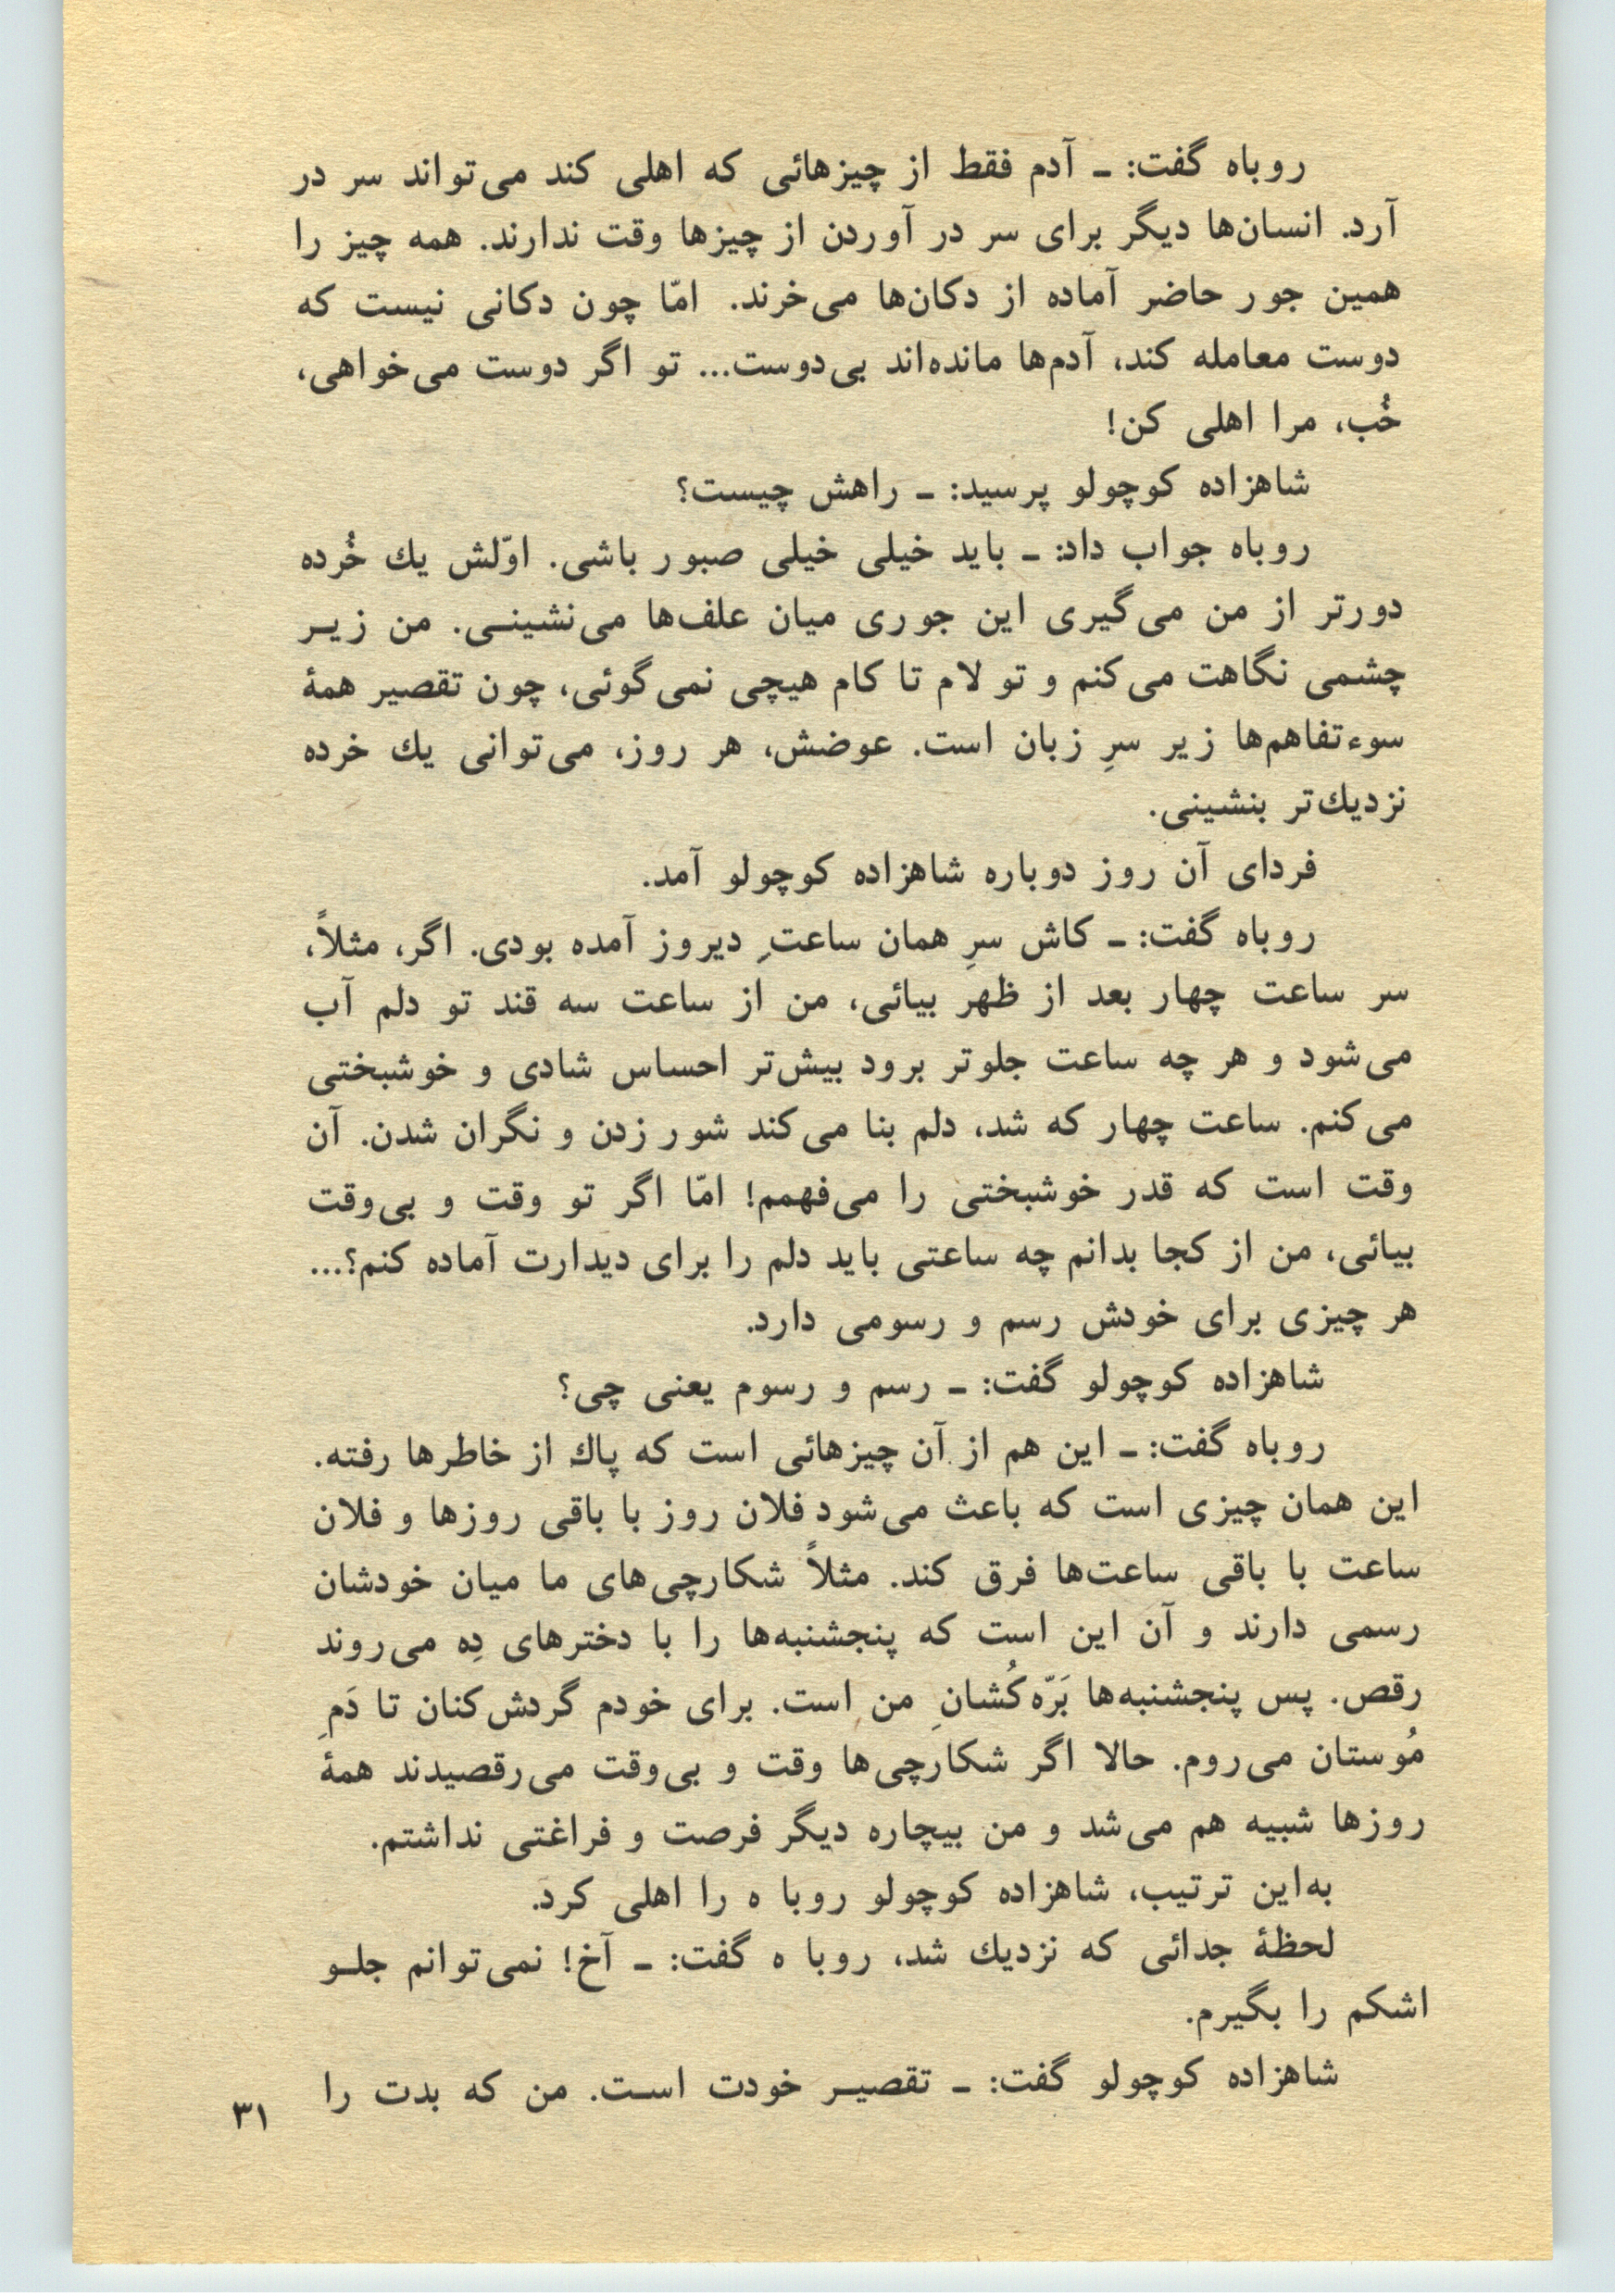 روباه گفت: ـ آدم فقط از چیزهائی که اهلی کند می‌تواند سر در
آرد. انسان‌ها دیگر برای سر در آوردن از چیزها وقت ندارند. همه چیز را
همین جور حاضر آماده از دکان‌ها می‌خرند. امّا چون دکانی نیست که
دوست معامله کند، آدم‌ها مانده‌اند بی‌دوست... تو اگر دوست می‌خواهی،
خُب، مرا اهلی کن!
شاهزاده کوچولو پرسید: ـ راهش چیست؟
روباه جواب داد: ـ باید خیلی خیلی صبور باشی. اوّلش یك خُرده
دورتر از من می‌گیری این جوری میان علف‌ها می‌نشینـی. من زیـر
چشمی نگاهت می‌کنم و تو لام تا کام هیچی نمی‌گوئی، چون تقصیر همهٔ
سوءتفاهم‌ها زیر سرِ زبان است. عوضش، هر روز، می‌توانی یك خرده
نزدیك‌تر بنشینی.
فردای آن روز دوباره شاهزاده کوچولو آمد.
روباه گفت: ـ کاش سرِ همان ساعتِ دیروز آمده بودی. اگر، مثلاً،
سر ساعت چهار بعد از ظهر بیائی، من از ساعت سه قند تو دلم آب
می‌شود و هر چه ساعت جلوتر برود بیش‌تر احساس شادی و خوشبختی
می‌کنم. ساعت چهار که شد، دلم بنا می‌کند شور زدن و نگران شدن. آن
وقت است که قدر خوشبختی را می‌فهمم! امّا اگر تو وقت و بی‌وقت
بیائی، من از کجا بدانم چه ساعتی باید دلم را برای دیدارت آماده کنم؟...
هر چیزی برای خودش رسم و رسومی دارد.
شاهزاده کوچولو گفت: ـ رسم و رسوم یعنی چی؟
روباه گفت: ـ این هم از آن چیزهائی است که پاك از خاطرها رفته.
این همان چیزی است که باعث می‌شود فلان روز با باقی روزها و فلان
ساعت با باقی ساعت‌ها فرق کند. مثلاً شکارچی‌های ما میان خودشان
رسمی دارند و آن این است که پنجشنبه‌ها را با دخترهای دِه می‌روند
رقص. پس پنجشنبه‌ها بَرّه‌کُشانِ من است. برای خودم گردش‌کنان تا دَمِ
مُوستان می‌روم. حالا اگر شکارچی‌ها وقت و بی‌وقت می‌رقصیدند همهٔ
روزها شبیه هم می‌شد و من بیچاره دیگر فرصت و فراغتی نداشتم.
به‌این ترتیب، شاهزاده کوچولو روبا ه را اهلی کرد.
لحظهٔ جدائی که نزدیك شد، روبا ه گفت: ـ آخ! نمی‌توانم جلـو
اشکم را بگیرم.
شاهزاده کوچولو گفت: ـ تقصیـر خودت اسـت. من که بدت را
۳۱